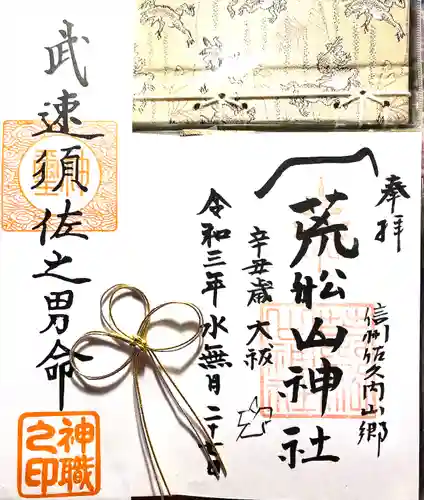 奉拝
信州佐久内山郷
荒船山神社
辛丑歳 大祓
令和三年水無月二十七日
武速須佐之男命
神職之印